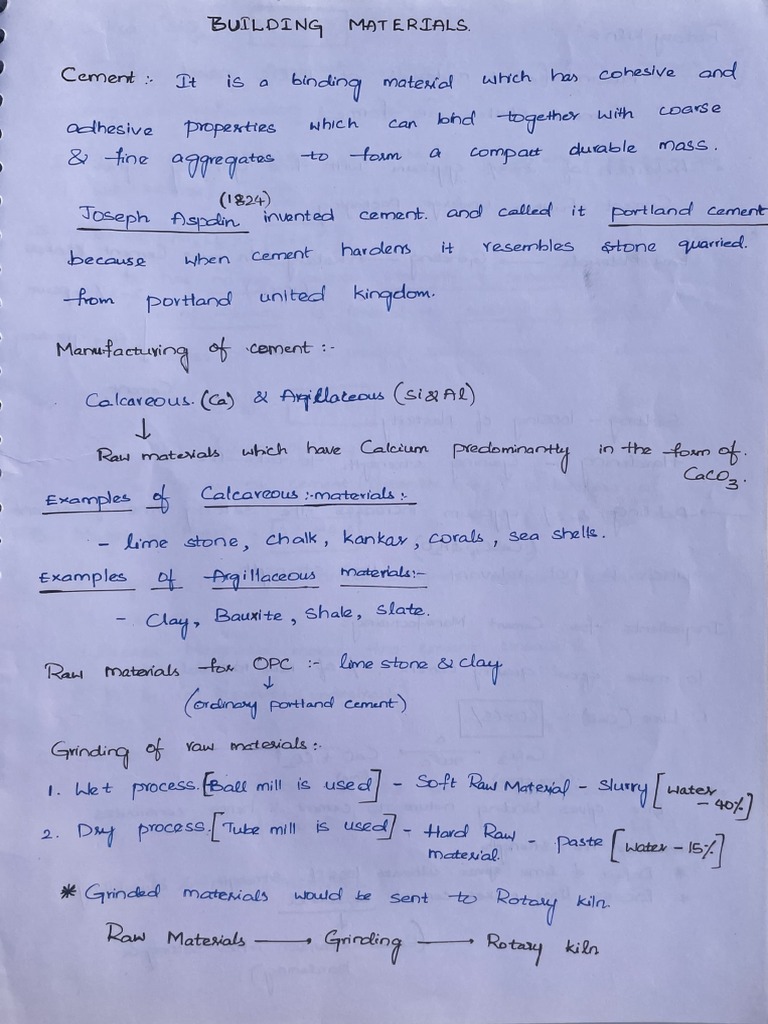 BUILDING MATERIALS.
Cement :- It is a binding material which has cohesive and
adhesive properties which can bind together with coarse
& fine aggregates to form a compact durable mass.
(1824)
Joseph Aspdin invented cement. and called it portland cement
because when cement hardens it resembles stone quarried.
from portland united kingdom.
Manufacturing of cement :-
Calcareous. (Ca) & Argillaceous (Si & Al)
↓
Raw materials which have Calcium predominantly in the form of.
CaCO3.
Examples of Calcareous :-materials :-
- lime stone, chalk, kankar, corals, sea shells.
Examples of Argillaceous materials:-
- Clay, Bauxite, shale, slate.
Raw materials for OPC :- lime stone & clay
↓
(ordinary portland cement)
Grinding of raw materials:-
1. Wet process.[Ball mill is used] - Soft Raw Material - slurry [water - 40%]
2. Dry process.[Tube mill is used] - Hard Raw material. - paste [water - 15%]
* Grinded materials would be sent to Rotary kiln.
Raw Materials → Grinding → Rotary kiln